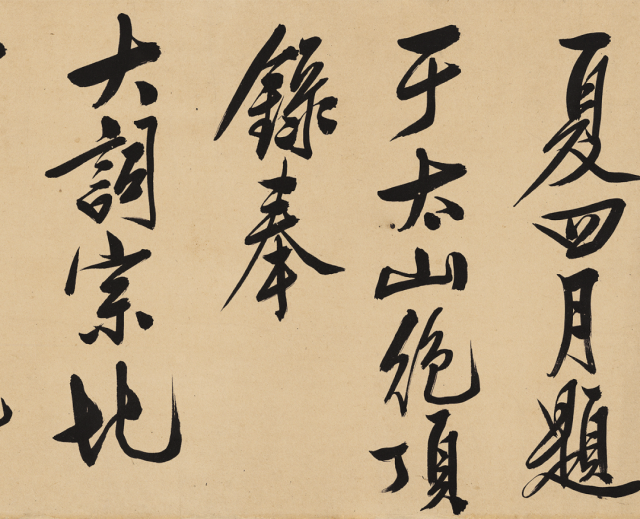 夏四月題
于太山絶頂
錄奉
大詞宗北